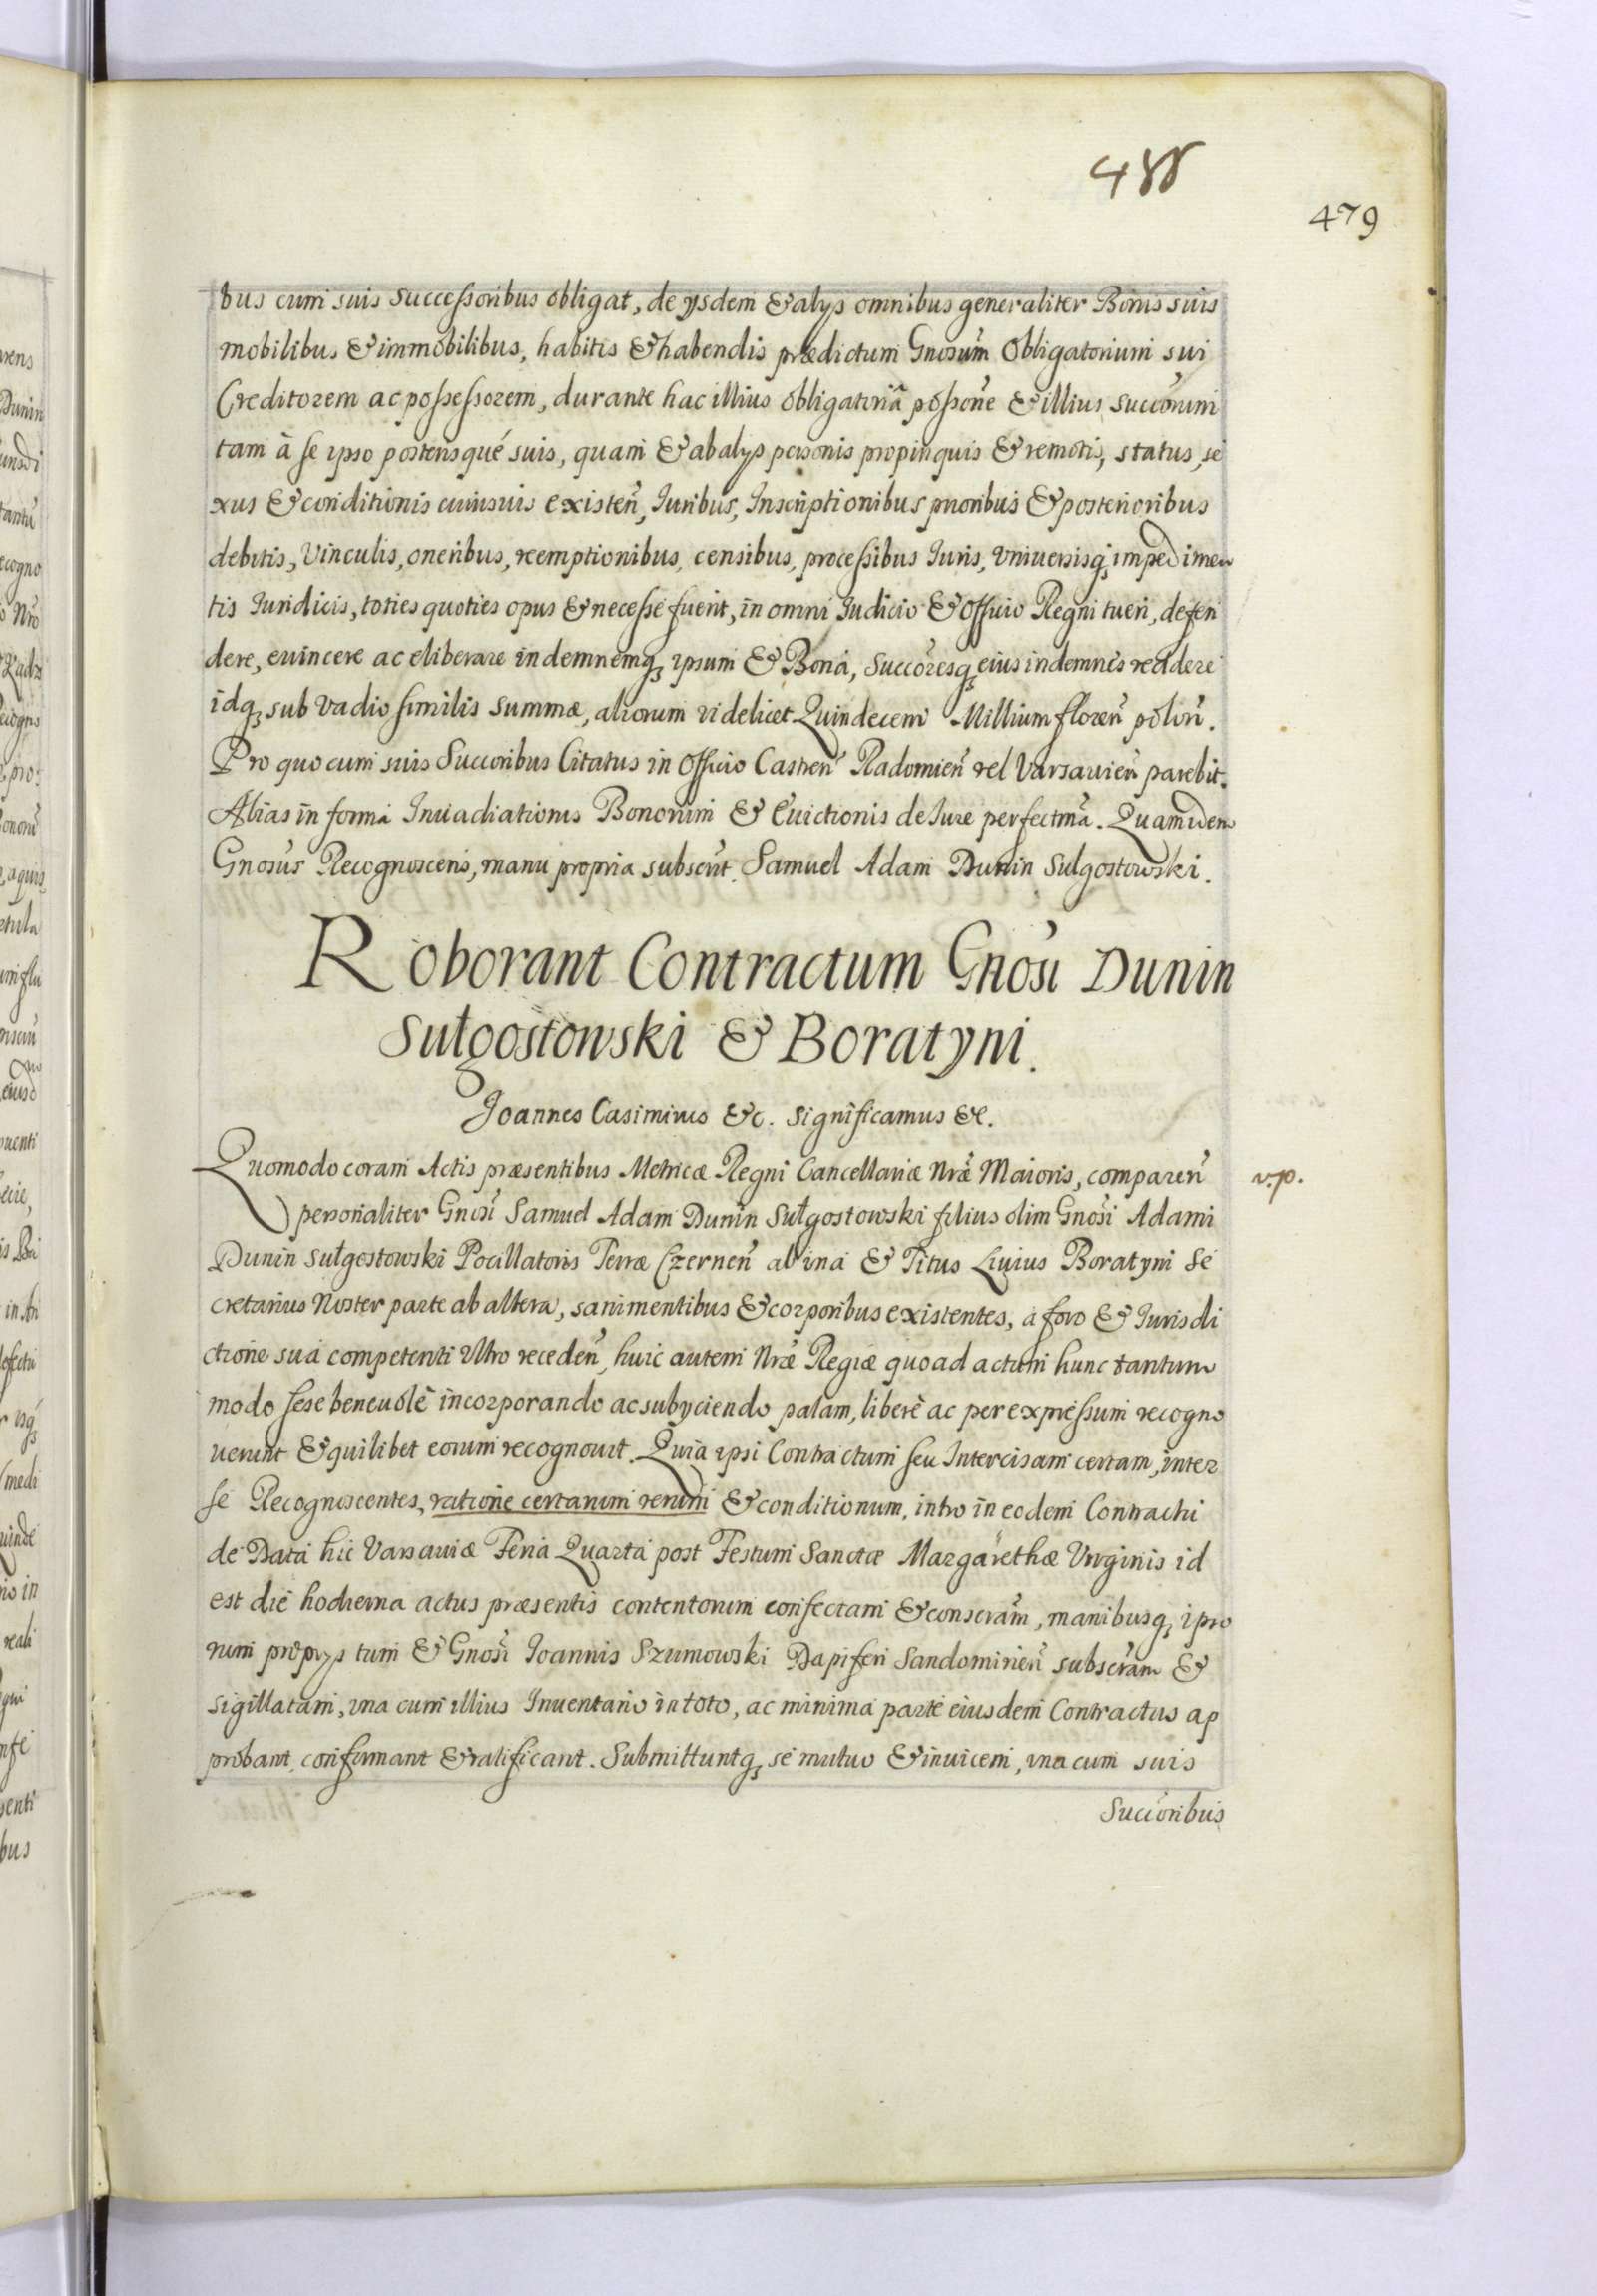 488
479
bus cum suis successoribus obligat, de ijsdem & alijs omnibus generaliter Bonis suis
mobilibus & immobilibus, habitis & habendis prædictum Gnosum Obligatorium sui
Creditorem ac possessorem, durante hac illius obligatoriâ possone & illius succorum
tam à se ipso posterisqué suis, quam & ab alijs personis propinquis & remotis, status, se
xus & conditionis cuiusuis existen, Iuribus, Inscriptionibus prioribus & posterioribus
debitis, Vinculis, oneribus, reemptionibus, censibus, processibus Iuris, Vniuersisq; impedimen
tis Iuridicis, toties quoties opus & necesse fuerit, in omni Iudicio & Officio Regni tueri, defen
dere, euincere ac eliberare indemnemq; ipsum & Bona, Succoresq; eius indemnes reddere
idq; sub Vadio similis summæ, aliorum videlicet Quindecem Millium floren polon.
Pro quo cum suis Succoribus Citatus in Officio Castren Radomien vel Varsauien parebit.
Alias in forma Inuadiationis Bonorum & Euictionis de Iure perfectma. Quam idem
Gnosus Recognoscens, manu propria subscrit. Samuel Adam Dunin Sulgostowski.
Roborant Contractum Gnosi Dunin
Sułgostowski & Boratyni.
Joannes Casimirus &c. Significamus &c.
Quomodo coram Actis præsentibus Metricæ Regni Cancellariæ Nræ Maioris, comparen
v.p.
personaliter Gnosi Samuel Adam Dunin Sułgostowski filius olim Gnosi Adami
Dunin Sułgostowski Pocillatoris Terræ Czernen ab ina & Titus Liuius Boratyni Se
cretarius Noster parte ab altera, sani mentibus & corporibus existentes, a foro & Iurisdi
ctione sua competenti Vltro receden, huic autem Nræ Regiæ quo ad actum hunc tantum
modo sese beneuolè incorporando ac subijciendo palam, liberè ac per expressum recogno
uerunt & quilibet eorum recognouit. Quia ipsi Contractum seu Intercisam certam, inter
se Recognoscentes, ratione certarum rerum & conditionum, intro in eodem Contractu
de Data hic Varsauiæ Feria Quarta post Festum Sanctæ Margarethæ Virginis id
est die hodierna actus præsentis contentorum confectam & conscram, manibusq; ipso
rum proprijs tum & Gnosi Joannis Szumowski Dapiferi Sandomirien subscram &
sigillatam, vna cum illius Inuentario in toto, ac minima parte eiusdem Contractus ap
probant, confirmant & ratificant. Submittuntq; se mutuo & inuicem, vna cum suis
Succoribus